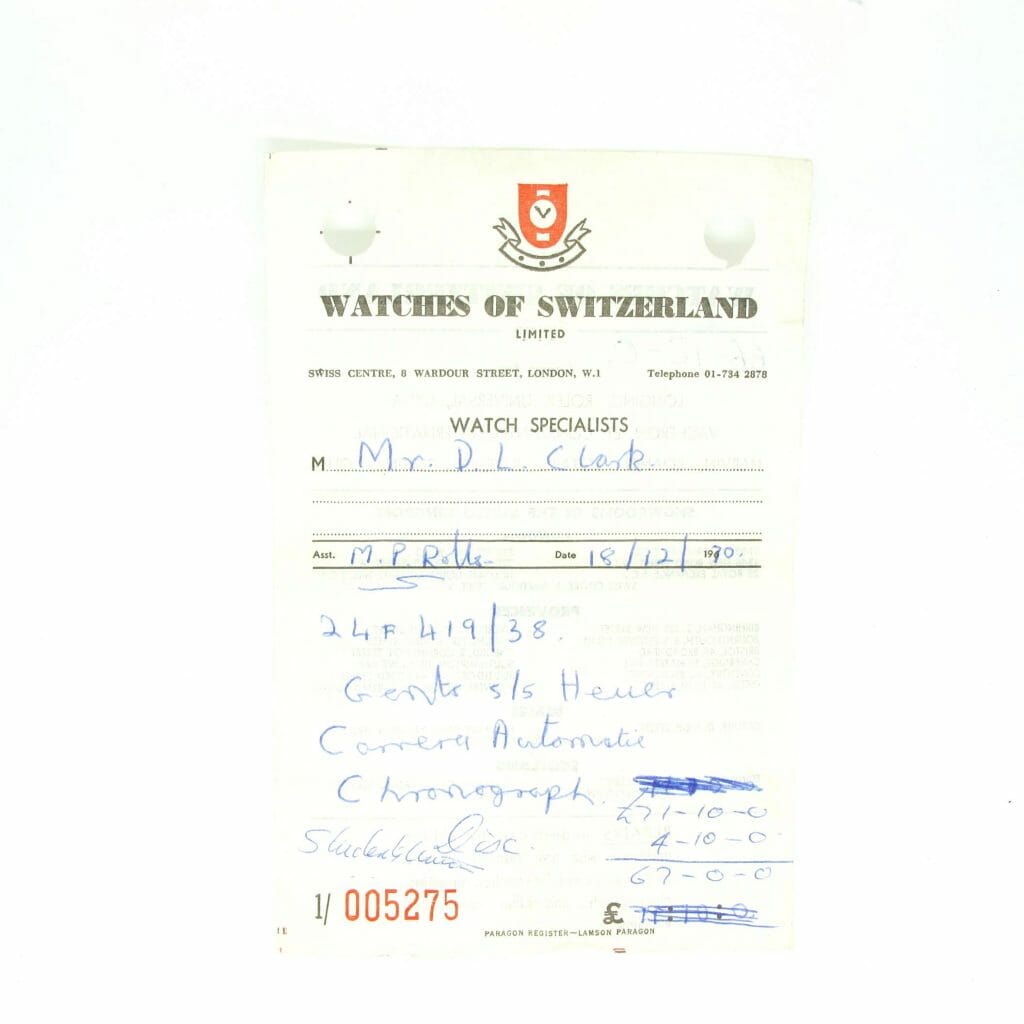 WATCHES OF SWITZERLAND
LIMITED
SWISS CENTRE, 8 WARDOUR STREET, LONDON, W.1 Telephone 01-734 2878
WATCH SPECIALISTS
M Mr. D. L. Clark.
Asst. M. P. Date 18/12/1970.
24F 419/38.
Gents s/s Heuer
Carrera Automatic
Chronograph.
£71-10-0
4-10-0
Student Disc.
67-0-0
1/ 005275 £
PARAGON REGISTER—LAMSON PARAGON